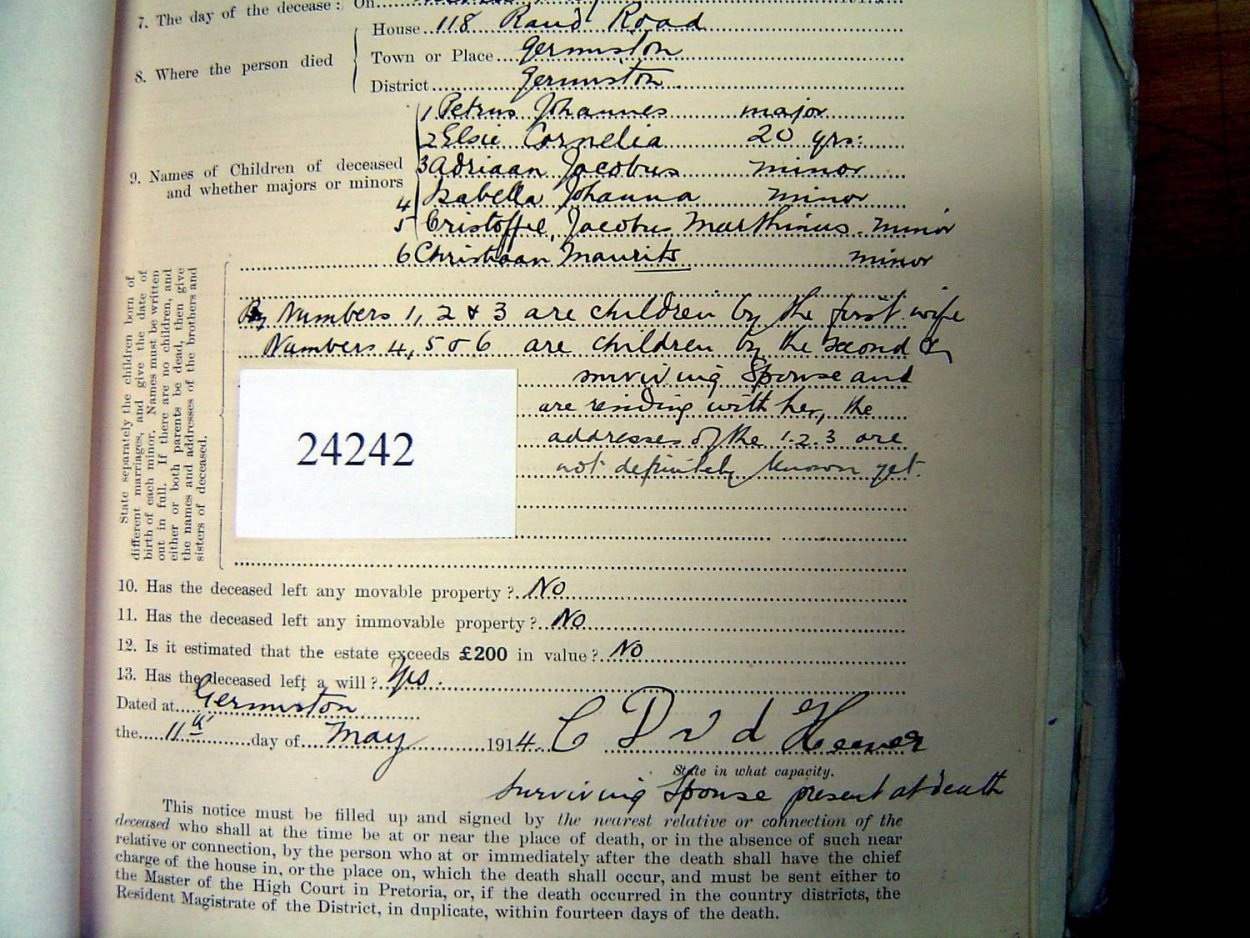 7. The day of the decease: On
8. Where the person died
House 118 Rand Road
Town or Place Germiston
District Germiston
9. Names of Children of deceased and whether majors or minors
1 Petrus Johannes major
2 Elsie Cornelia 20 yrs:
3 Adriaan Jacobus minor
4 Isabella Johanna minor
5 Cristoffel Jacobus Marthinus minor
6 Christiaan Maurits minor
State separately the children born of
different marriages, and give the date of
birth of each minor. Names must be written
out in full. If there are no children, and
either or both parents be dead, then give
the names and addresses of the brothers and
sisters of deceased.
Numbers 1, 2 & 3 are children by the first wife
Numbers 4, 5 & 6 are children by the second &
surviving Spouse and
are residing with her, the
addresses of the 1.2.3 are
not definitely known yet.
24242
10. Has the deceased left any movable property? No
11. Has the deceased left any immovable property? No
12. Is it estimated that the estate exceeds £200 in value? No
13. Has the deceased left a will? Yes.
Dated at Germiston
the 11th day of May 1914. C D v d Heever
State in what capacity.
Surviving Spouse present at death
This notice must be filled up and signed by the nearest relative or connection of the
deceased who shall at the time be at or near the place of death, or in the absence of such near
relative or connection, by the person who at or immediately after the death shall have the chief
charge of the house in, or the place on, which the death shall occur, and must be sent either to
the Master of the High Court in Pretoria, or, if the death occurred in the country districts, the
Resident Magistrate of the District, in duplicate, within fourteen days of the death.